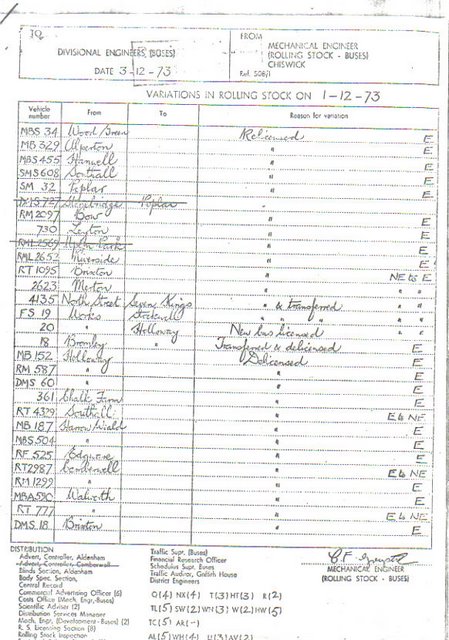 TO
DIVISIONAL ENGINEERS (BUSES)
DATE 3-12-73
FROM
MECHANICAL ENGINEER
(ROLLING STOCK - BUSES)
CHISWICK
Ref. 508/1
VARIATIONS IN ROLLING STOCK ON 1-12-73
Vehicle number From To Reason for variation
MBS 34 Wood Green Relicensed E
MB 329 Alperton " E
MBS 455 Hanwell " E
SMS 608 Southall " E
SM 32 Poplar " E
DMS 727 Stonebridge Poplar "
RM 2097 Bow " E
730 Leyton " E
RML 2569 Upton Park " E
RML 2652 Riverside " E
RT 1095 Brixton " NE & E
2623 Merton " " "
4135 North Street Seven Kings " & transferred " "
FS 19 Works Stockwell " " "
20 " Holloway New bus licensed " "
18 Bromley Transferred & delicensed E
MB 152 Holloway Delicensed E
RM 587 " " E
DMS 60 " " E
361 Chalk Farm " E
RT 4329 Southall " E & NE
MB 187 Harrow Weald " E
MBS 504 " " E
RF 525 Edgware " E
RT 2987 Camberwell " E & NE
RM 1299 " " E
MBA 590 Walworth " E
RT 777 " " E & NE
DMS 18 Brixton " E
DISTRIBUTION
Advert. Controller, Aldenham
Advert. Controller, Camberwell
Blinds Section, Aldenham
Body Spec. Section,
Central Record
Commercial Advertising Officer (6)
Costs Office (Mech. Engr.-Buses)
Scientific Adviser (2)
Distribution Services Manager
Mech. Engr. (Development-Buses) (2)
R. S. Licensing Section (8)
Rolling Stock Inspection
Traffic Supt. (Buses)
Financial Research Officer
Schedules Supt. Buses
Traffic Auditor, Griffith House
District Engineers
Q(4) NX(4) T(3) HT(3) R(2)
TL(5) SW(2) WN(3) W(2) HW(5)
TC(5) AR(-)
AL(5) WH(4) U(3) AV(2)
MECHANICAL ENGINEER
(ROLLING STOCK - BUSES)